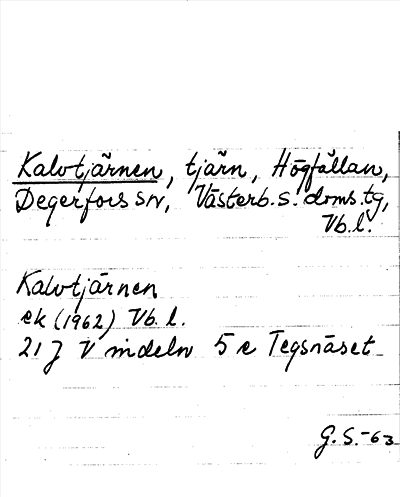 Kalvtjärnen, tjärn, Högfällan,
Degerfors sn, Västerb. s. doms. tg,
Vb. l.
Kalvtjärnen
ek (1962) Vb. l.
21 J Vindeln 5 e Tegsnäset
G. S. -63